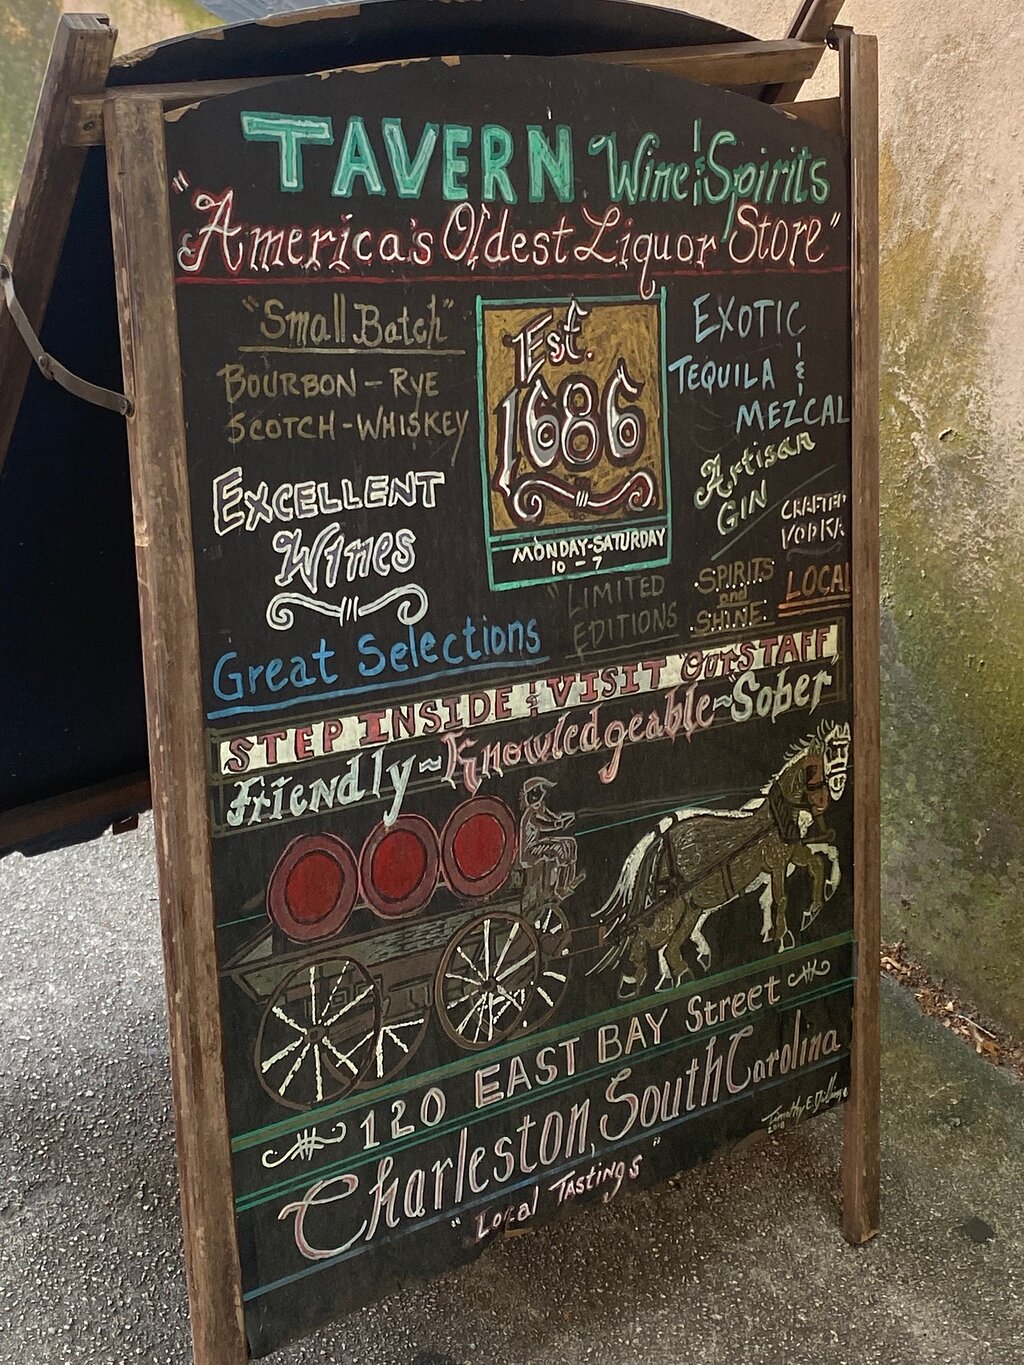 TAVERN Wine & Spirits
"America's Oldest Liquor Store"
"Small Batch"
BOURBON - RYE
SCOTCH - WHISKEY
EXCELLENT
Wines
Great Selections
Est.
1686
MONDAY-SATURDAY
10 - 7
"LIMITED
EDITIONS
EXOTIC
TEQUILA &
MEZCAL
Artisan
GIN
CRAFTED
VODKA
SPIRITS
and
SHINE
LOCAL
STEP INSIDE & VISIT OUR STAFF
Friendly ~ Knowledgeable ~ "Sober
120 EAST BAY Street
Charleston, South Carolina
Timothy E.
"Local TASTINGS"